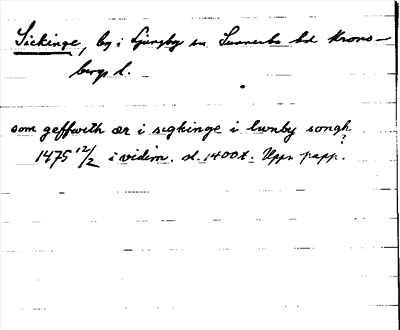 Sickinge, by i Ljungby sn. Sunnerbo hd Krono-
bergs l.
som geffwith ær i sigkinge i lwnby songh
1475 12/2 i vidim. sl. 1400t. Upps papp.